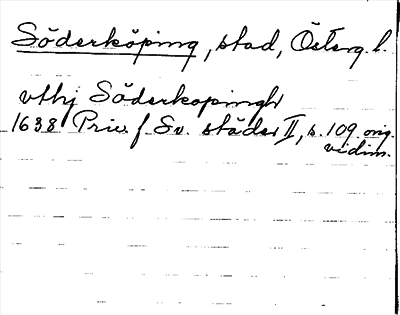 Söderköping, stad, Österg. l.
vthj Söderkopingh
1638 Priv. f. Sv. städer II, s. 109 orig.
vidim.